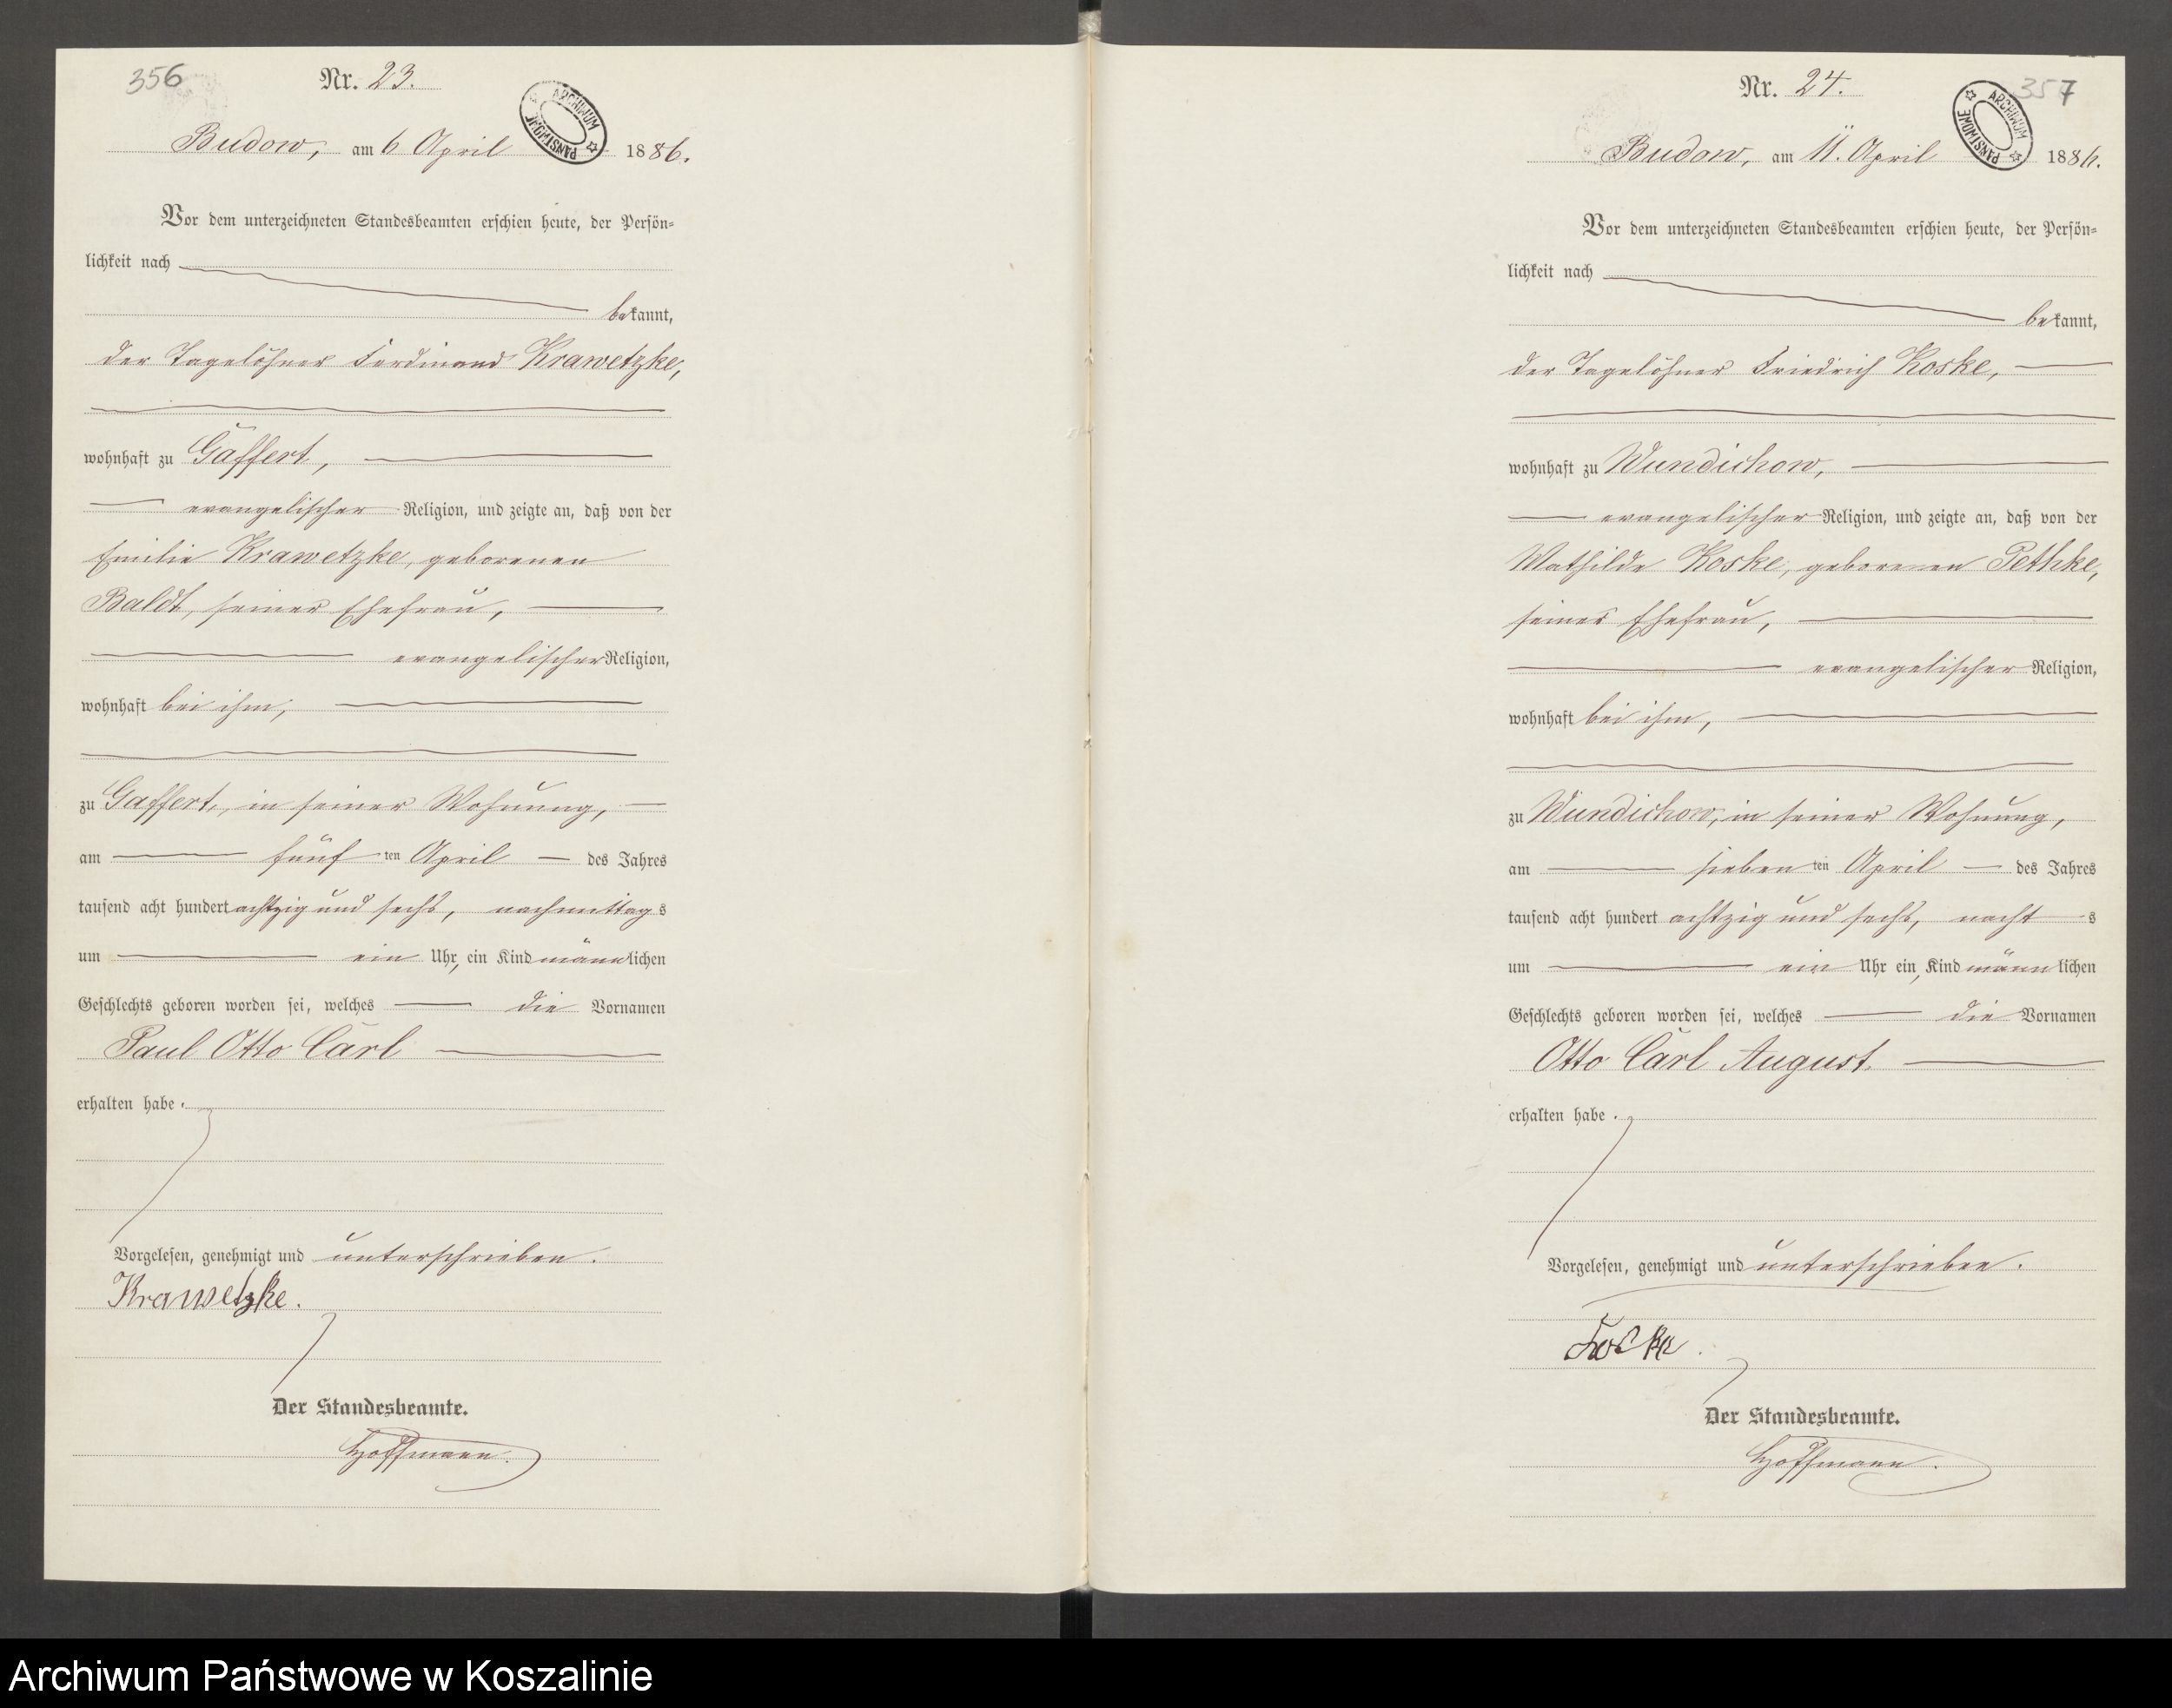 356
Nr. 23.
ARCHIWUM PAŃSTWOWE
Budow, am 6 April 1886.
Vor dem unterzeichneten Standesbeamten erschien heute, der Persön-
lichkeit nach
bekannt,
der Tagelöhner Ferdinand Krawetzke,
wohnhaft zu Gaffert,
evangelischer Religion, und zeigte an, daß von der
Emilie Krawetzke, geborenen
Baldt, seiner Ehefrau,
evangelischer Religion,
wohnhaft bei ihm,
zu Gaffert, in seiner Wohnung,
am fünf ten April des Jahres
tausend acht hundert achtzig und sechs, nachmittags
um ein Uhr, ein Kind männlichen
Geschlechts geboren worden sei, welches die Vornamen
Paul Otto Carl
erhalten habe.
Vorgelesen, genehmigt und unterschrieben.
Krawetzke.
Der Standesbeamte.
Hoffmann.
357
Nr. 24.
ARCHIWUM PAŃSTWOWE
Budow, am 11. April 1886.
Vor dem unterzeichneten Standesbeamten erschien heute, der Persön-
lichkeit nach
bekannt,
der Tagelöhner Friedrich Koske,
wohnhaft zu Wundichow,
evangelischer Religion, und zeigte an, daß von der
Mathilde Koske, geborenen Pethke,
seiner Ehefrau,
evangelischer Religion,
wohnhaft bei ihm,
zu Wundichow, in seiner Wohnung,
am sieben ten April des Jahres
tausend acht hundert achtzig und sechs, nachts
um ein Uhr ein Kind männlichen
Geschlechts geboren worden sei, welches die Vornamen
Otto Carl August
erhalten habe.
Vorgelesen, genehmigt und unterschrieben.
Koske
Der Standesbeamte.
Hoffmann.
Archiwum Państwowe w Koszalinie